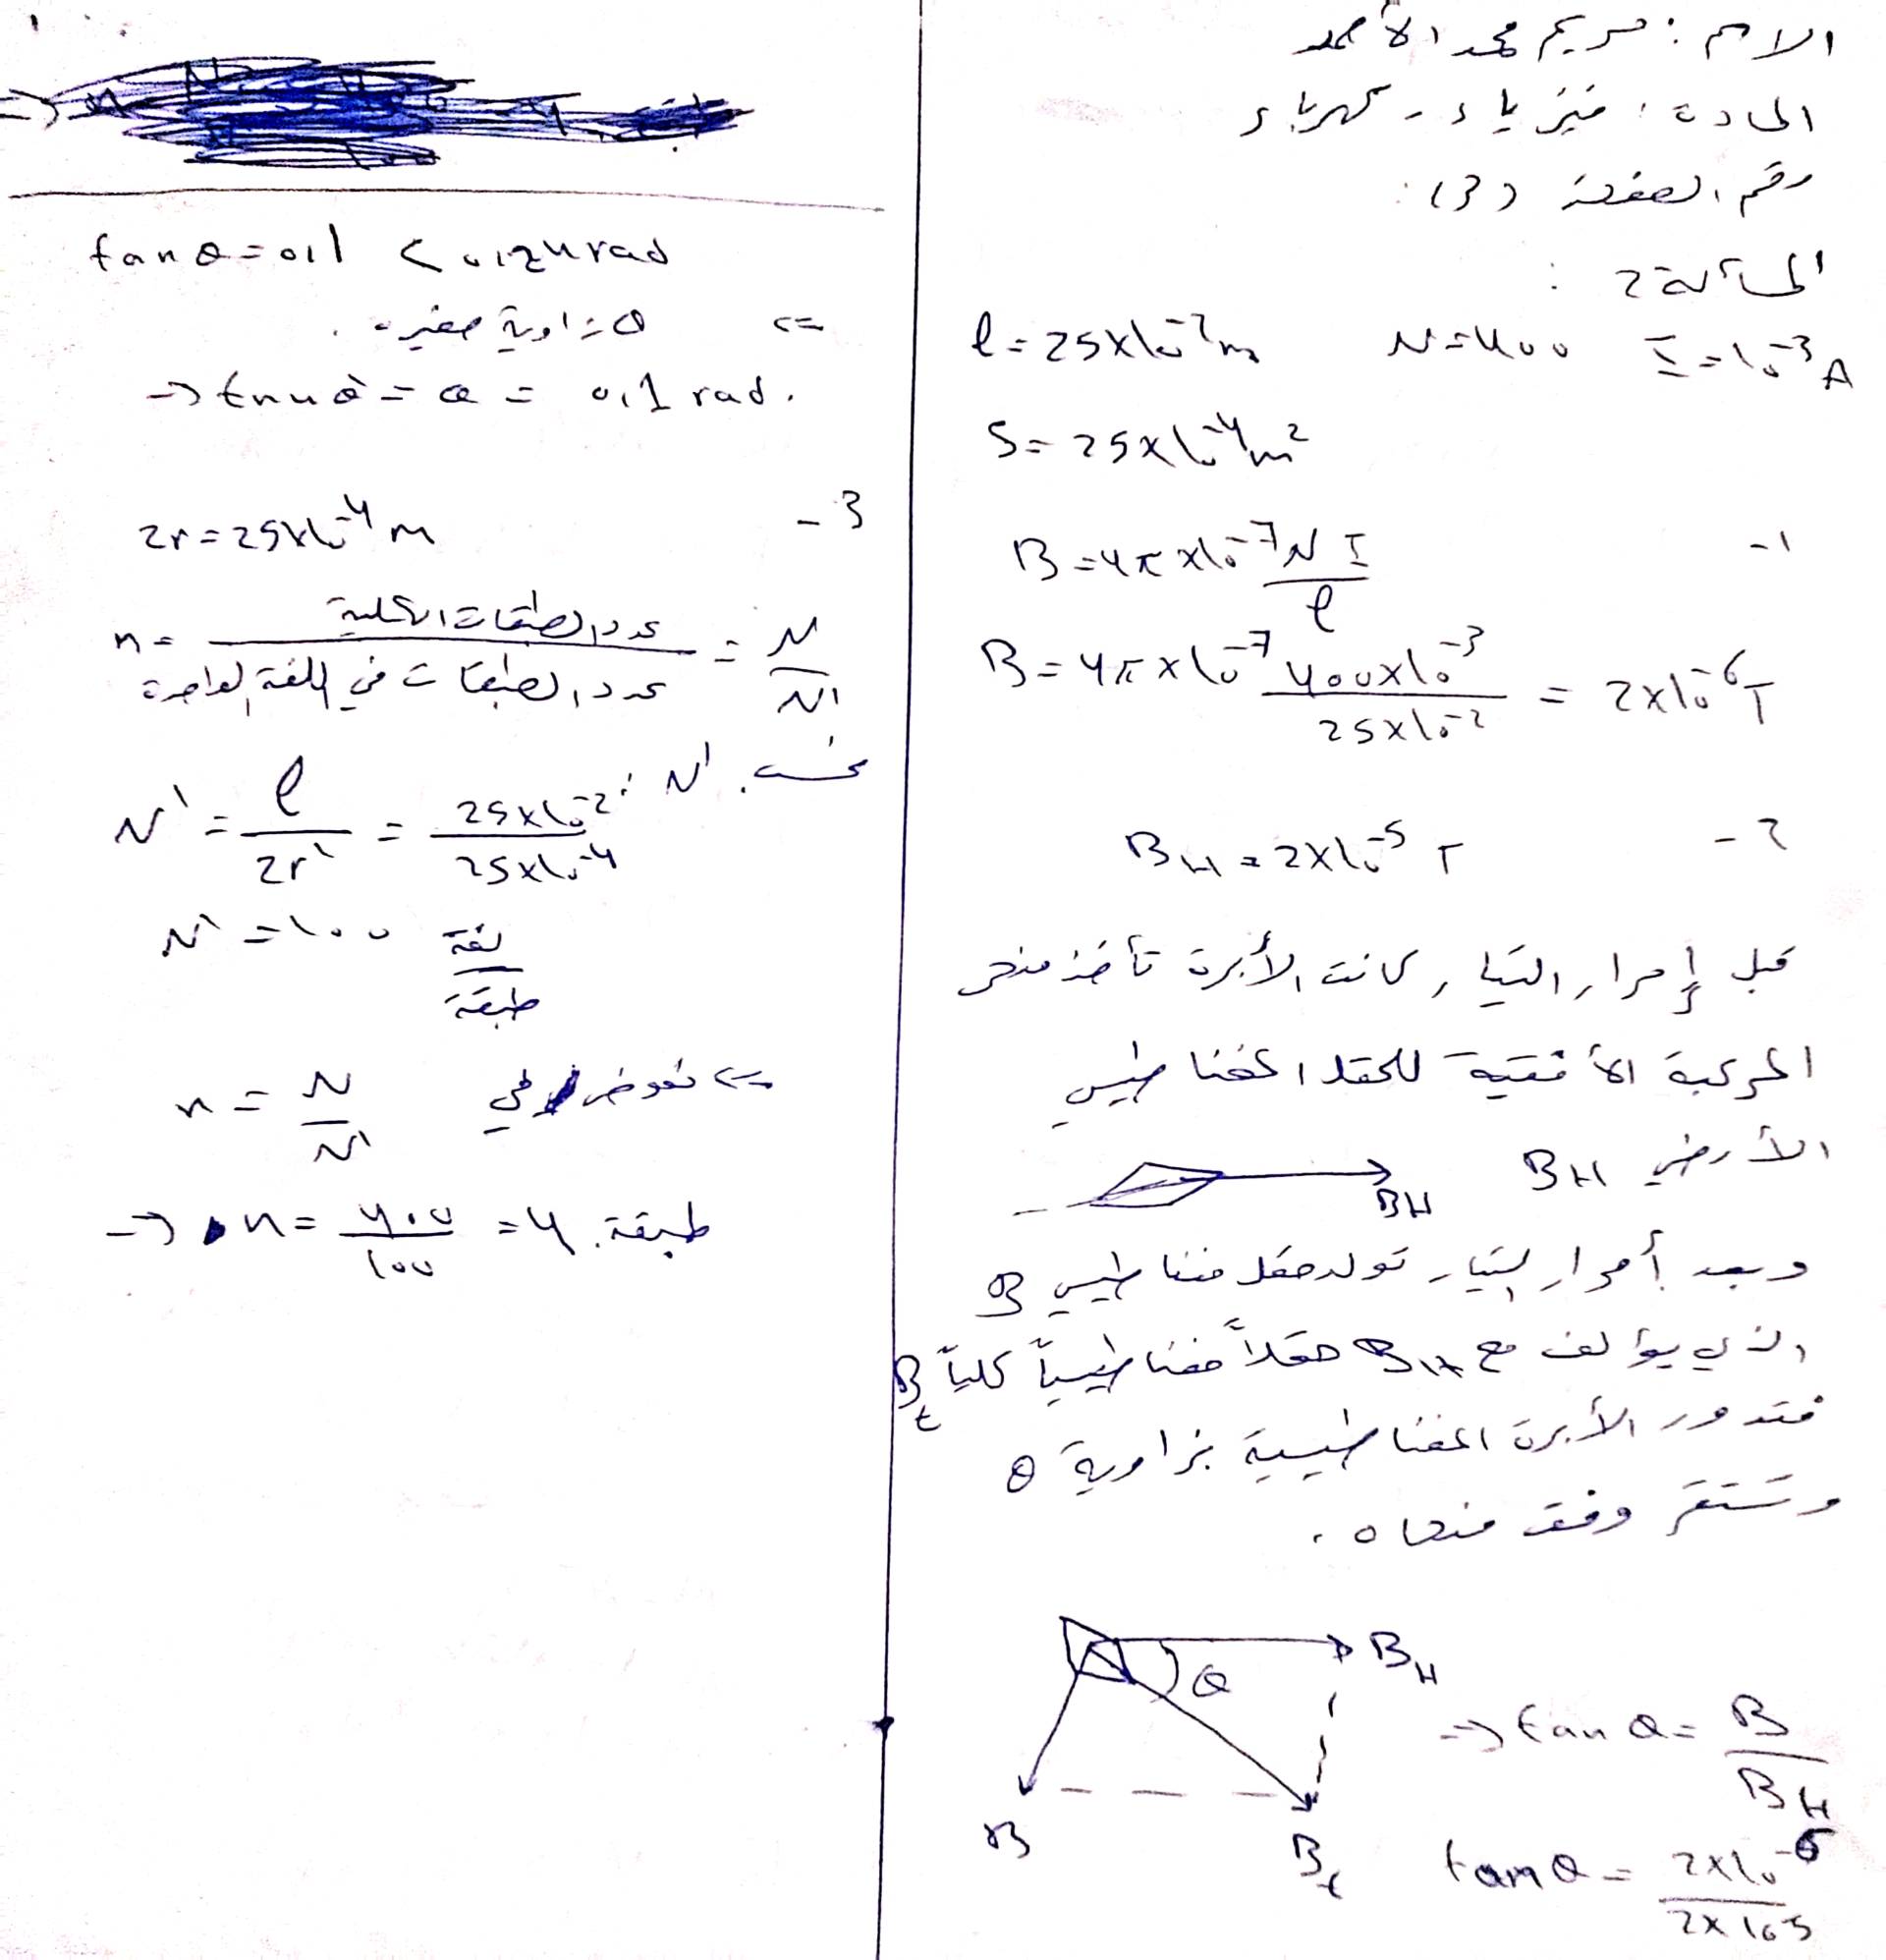 الاسم : مريم محمد الأحمد
المادة : فيزياء - كهرباء
رقم الصفحة (3) :
المسألة 2 :
I = 10^-3 A N = 400 l = 25×10^-2 m
S = 25×10^-4 m^2
1- B = 4π×10^-7 N I / l
B = 4π×10^-7 400×10^-3 / 25×10^-2 = 2×10^-6 T
2- B_H = 2×10^-5 T
قبل إمرار التيار كانت الأبرة تأخذ منحى
المركبة الأفقية للحقل المغناطيسي
الأرضي B_H
B_H
وبعد أمرار التيار تولد حقل مغناطيسي B
الذي يؤلف مع B_H حقلاً مغناطيسياً كلياً B_t
فتدور الأبرة المغناطيسية بزاوية θ
وتستقر وفق منحاه .
B_H
θ
B
B_t
→ tan θ = B / B_H
tan θ = 2×10^-6 / 2×10^-5
tan θ = 0,1 < 0,24 rad
<= θ زاوية صغيرة .
→ tan θ = θ = 0,1 rad.
3- 2r = 25×10^-4 m
n = عدد الطبقات الكلية / عدد الطبقات في اللفة الواحدة = N / N'
نحسب N' :
N' = l / 2r' = 25×10^-2 / 25×10^-4
N' = 100 لفة / طبقة
<= نعوض في n = N / N'
→ n = 400 / 100 = 4 طبقة.